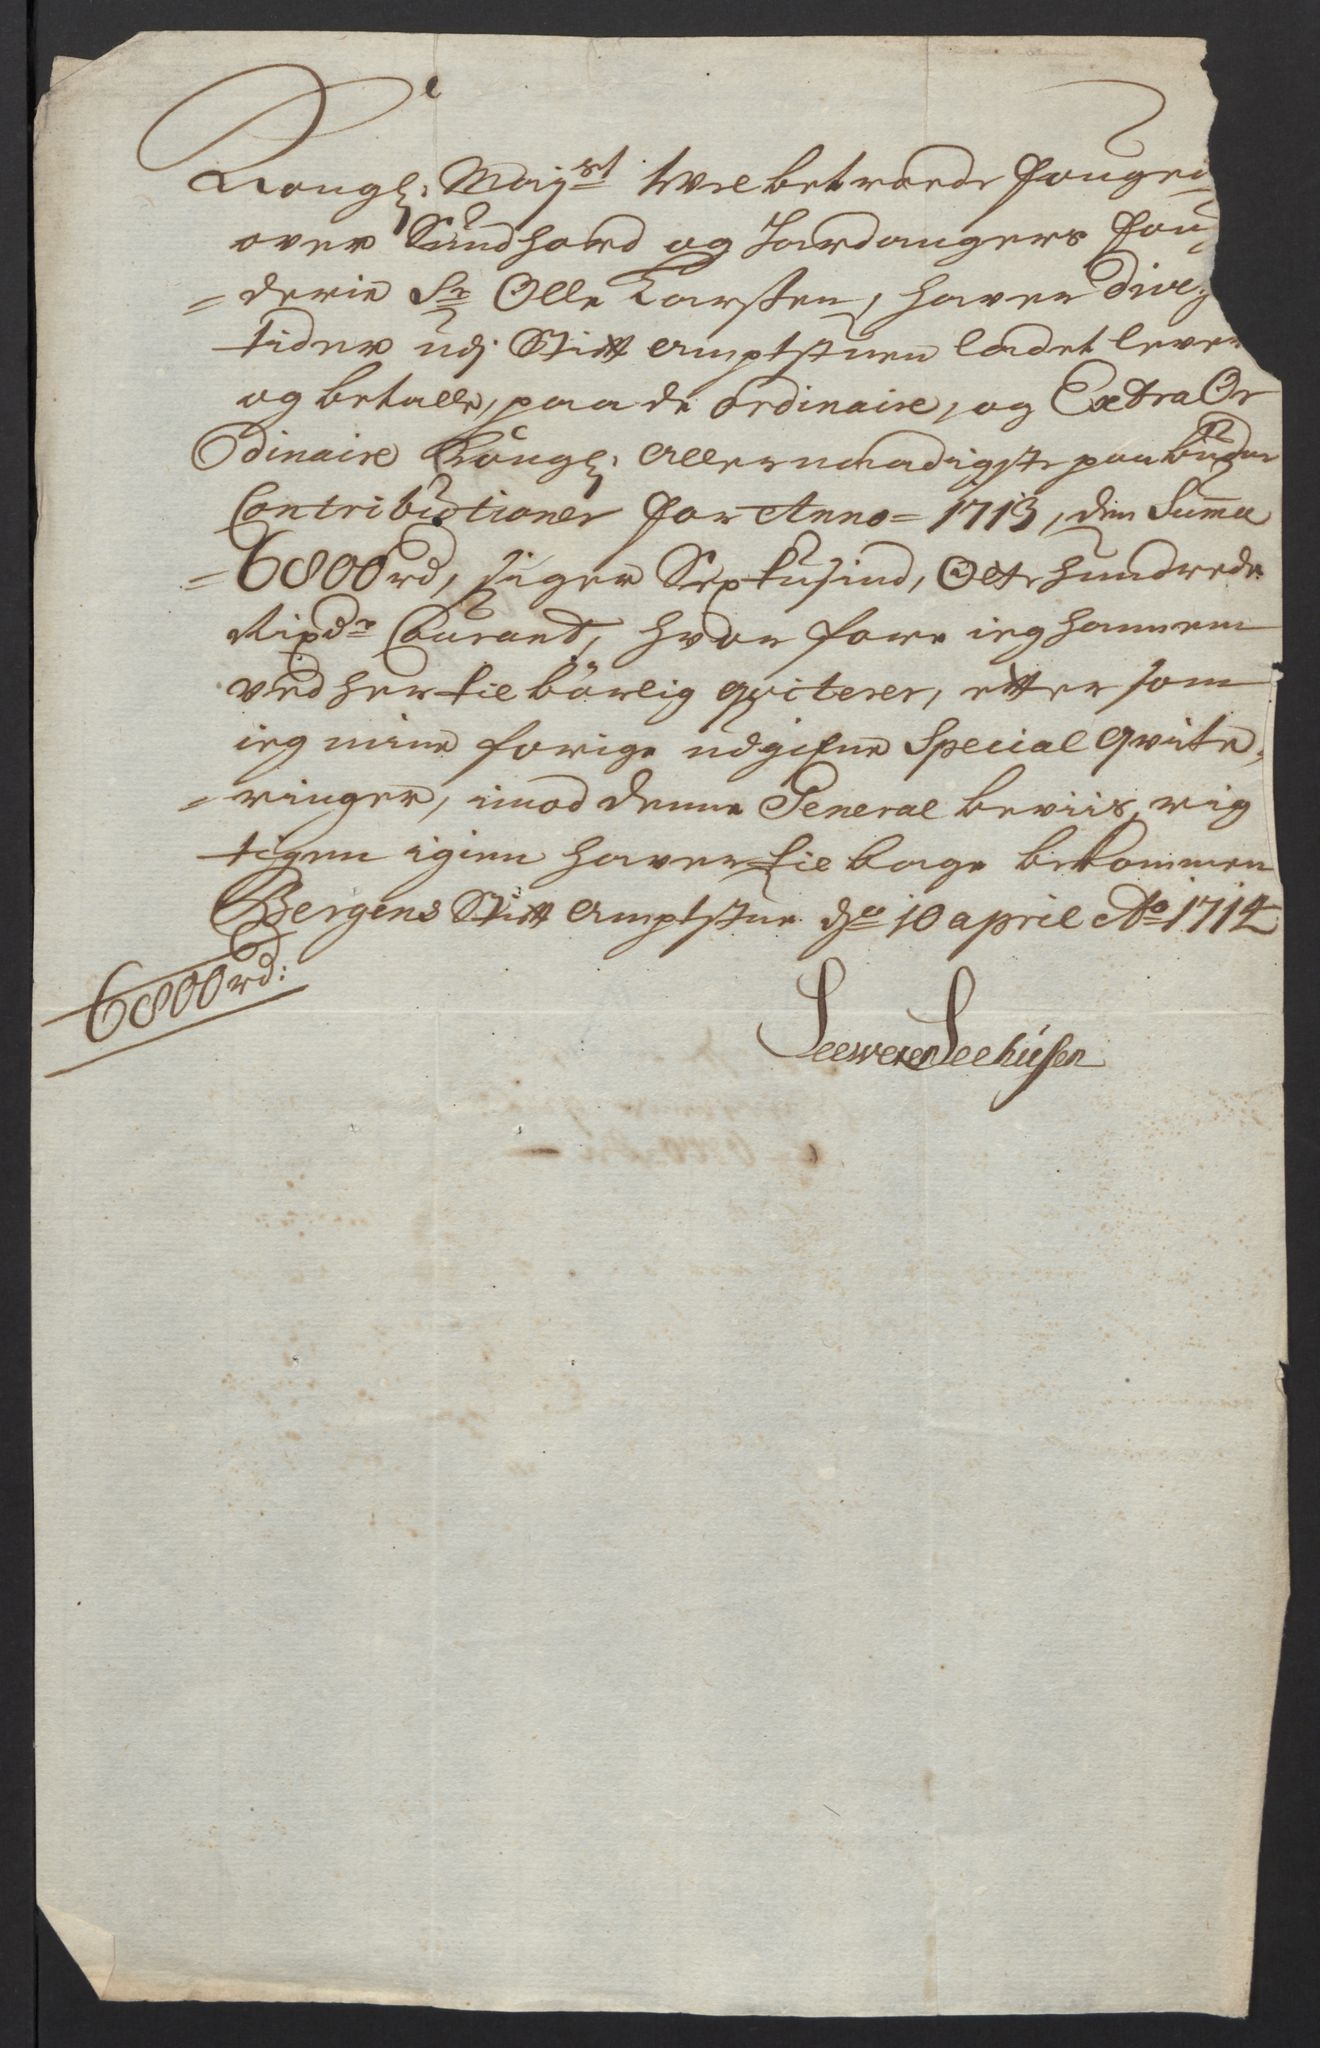 Kongl: Maÿst: Welbetroede Fouged
over Sundhord og Hardangers Fou
= derie Sr Olle Larsen, haver Dive
tider udj Stift Amptstuen ladet lever
og betalle, paa de ordinaire, og ExtraOr
dinaire Kongl: Allernaadigste paabudne
Contributioner for Anno = 1713, den Summa
= 6800 rd, siger Sex tusind, Otte hundrede
Rixdr Courant, hvor fore ieg hannem
ved her tilbörlig qviterer, efter som
ieg mine forige udgifne Special Qvite,
= ringer, imod denne General beviis, rig
tigen igien haver tilbage bekommen
Bergens Stift Amptstue dn 10 april Ao 1714
6800 rd:
Seeweren Seehusen